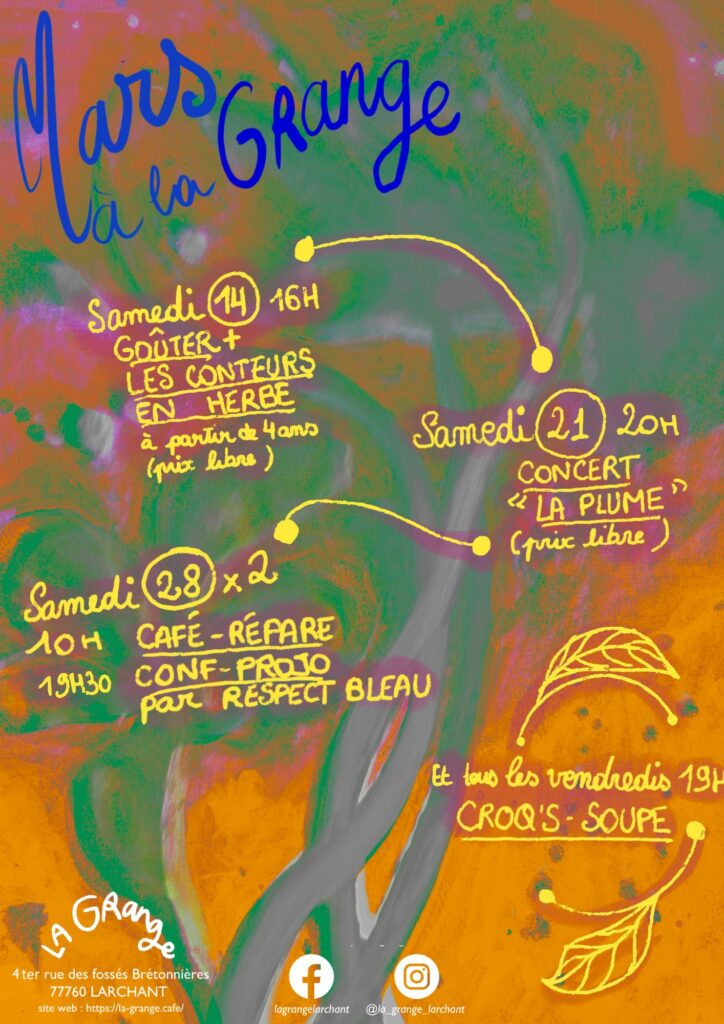 Mars
à la GRange
Samedi 14 16H
GOÛTER +
LES CONTEURS
EN HERBE
à partir de 4 ans
(prix libre)
Samedi 21 20H
CONCERT
"LA PLUME"
(prix libre)
Samedi 28 x 2
10H CAFÉ-RÉPARE
19H30 CONF-PROJO
par RESPECT BLEAU
Et tous les vendredis 19H
CROQ'S-SOUPE
LA GRange
4 ter rue des fossés Brétonnières
77760 LARCHANT
site web : https://la-grange.cafe/
lagrangelarchant @la_grange_larchant